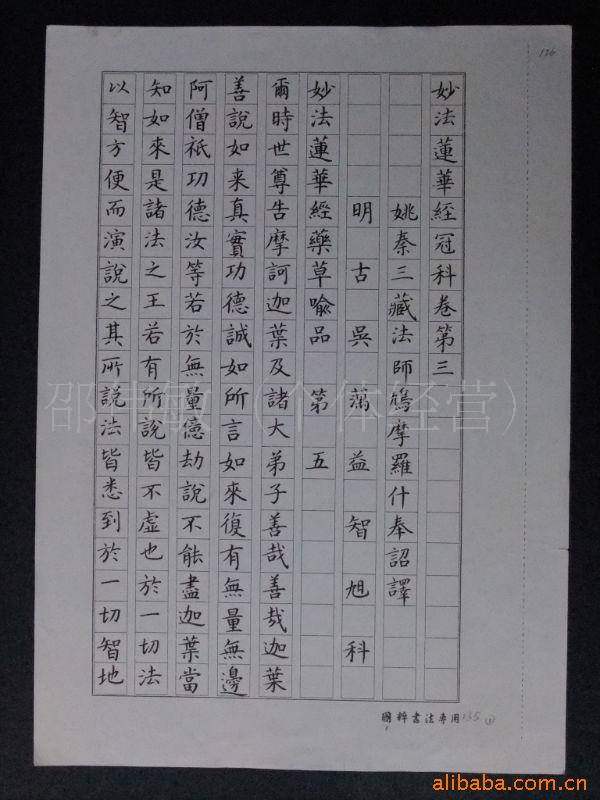 136
妙法蓮華經冠科卷第三
姚秦三藏法師鳩摩羅什奉詔譯
明古吳蕅益智旭科
妙法蓮華經藥草喻品第五
爾時世尊告摩訶迦葉及諸大弟子善哉善哉迦葉
善說如来真實功德誠如所言如來復有無量無邊
阿僧祇功德汝等若於無量億劫說不能盡迦葉當
知如來是諸法之王若有所說皆不虛也於一切法
以智方便而演說之其所說法皆悉到於一切智地
國粹書法專用 135 ①
(个体经营)
alibaba.com.cn